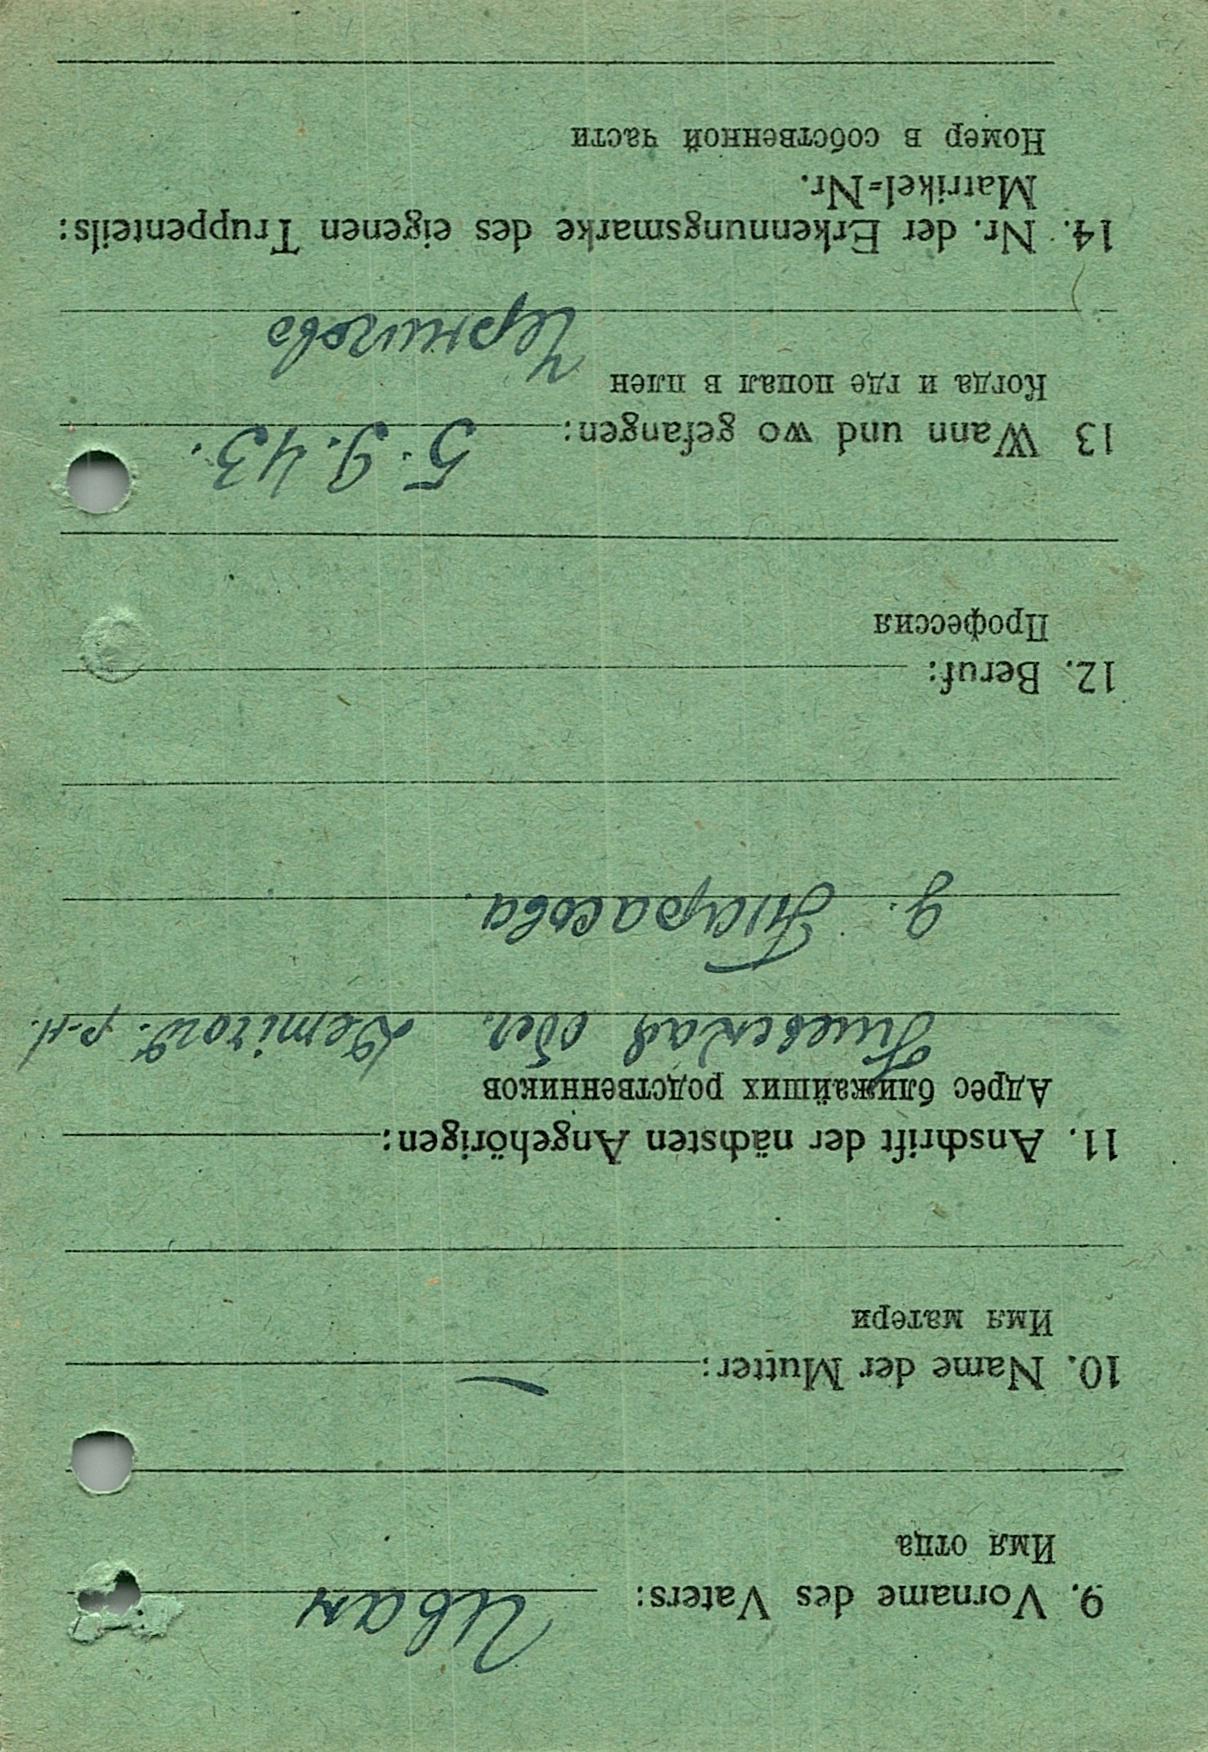 9. Vorname des Vaters: Иван
Имя отца
10. Name der Mutter: —
Имя матери
11. Anschrift der nächsten Angehörigen:
Адрес ближайших родственников
Киевская обл. р-н.
д. Тарасова.
12. Beruf:
Профессия
13 Wann und wo gefangen: 5.9.43.
Когда и где попал в плен
Чернигово
14. Nr. der Erkennungsmarke des eigenen Truppenteils:
Matrikel=Nr.
Номер в собственной части